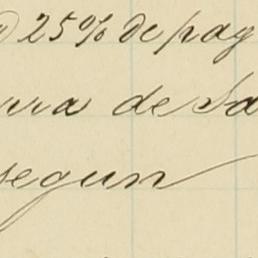 25% de pag
rra de Sa
segun